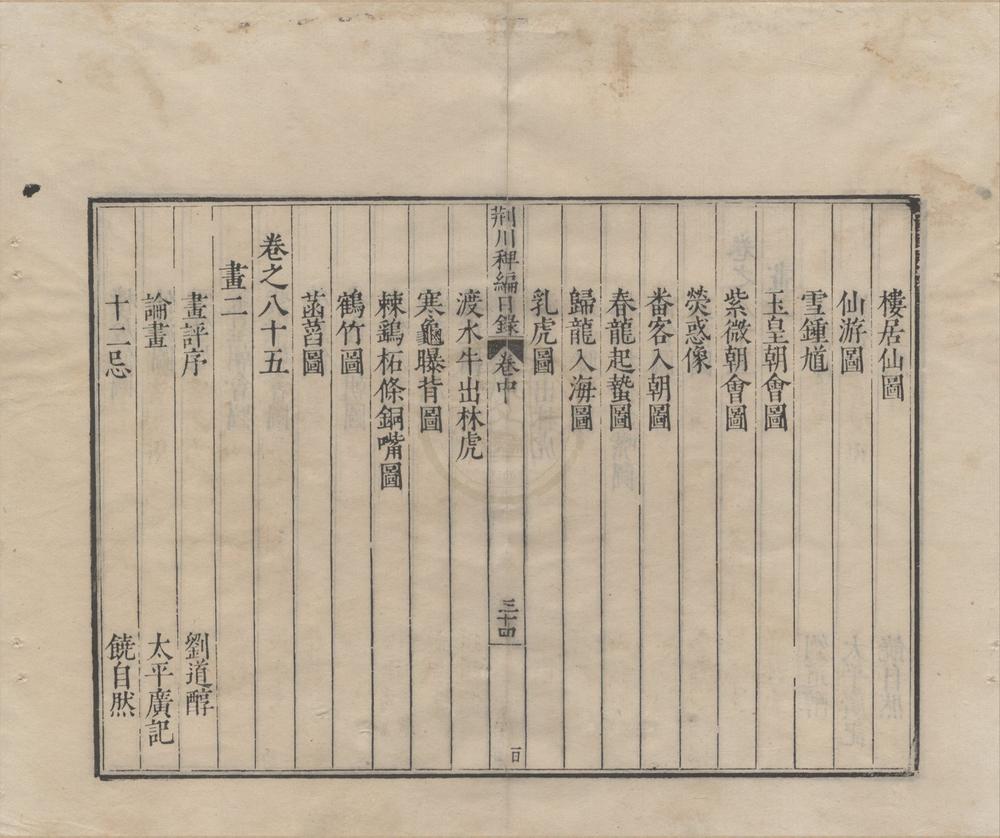 樓居仙圖
仙游圖
雪鍾馗
玉皇朝會圖
紫微朝會圖
熒惑像
番客入朝圖
春龍起蟄圖
歸龍入海圖
乳虎圖
荆川稗編目錄 卷中 三十四
渡水牛出林虎
寒龜曝背圖
棘鷄柘條銅嘴圖
鶴竹圖
菡萏圖
卷之八十五
畫二
畫評序 劉道醇
論畫 太平廣記
十二忌 饒自然